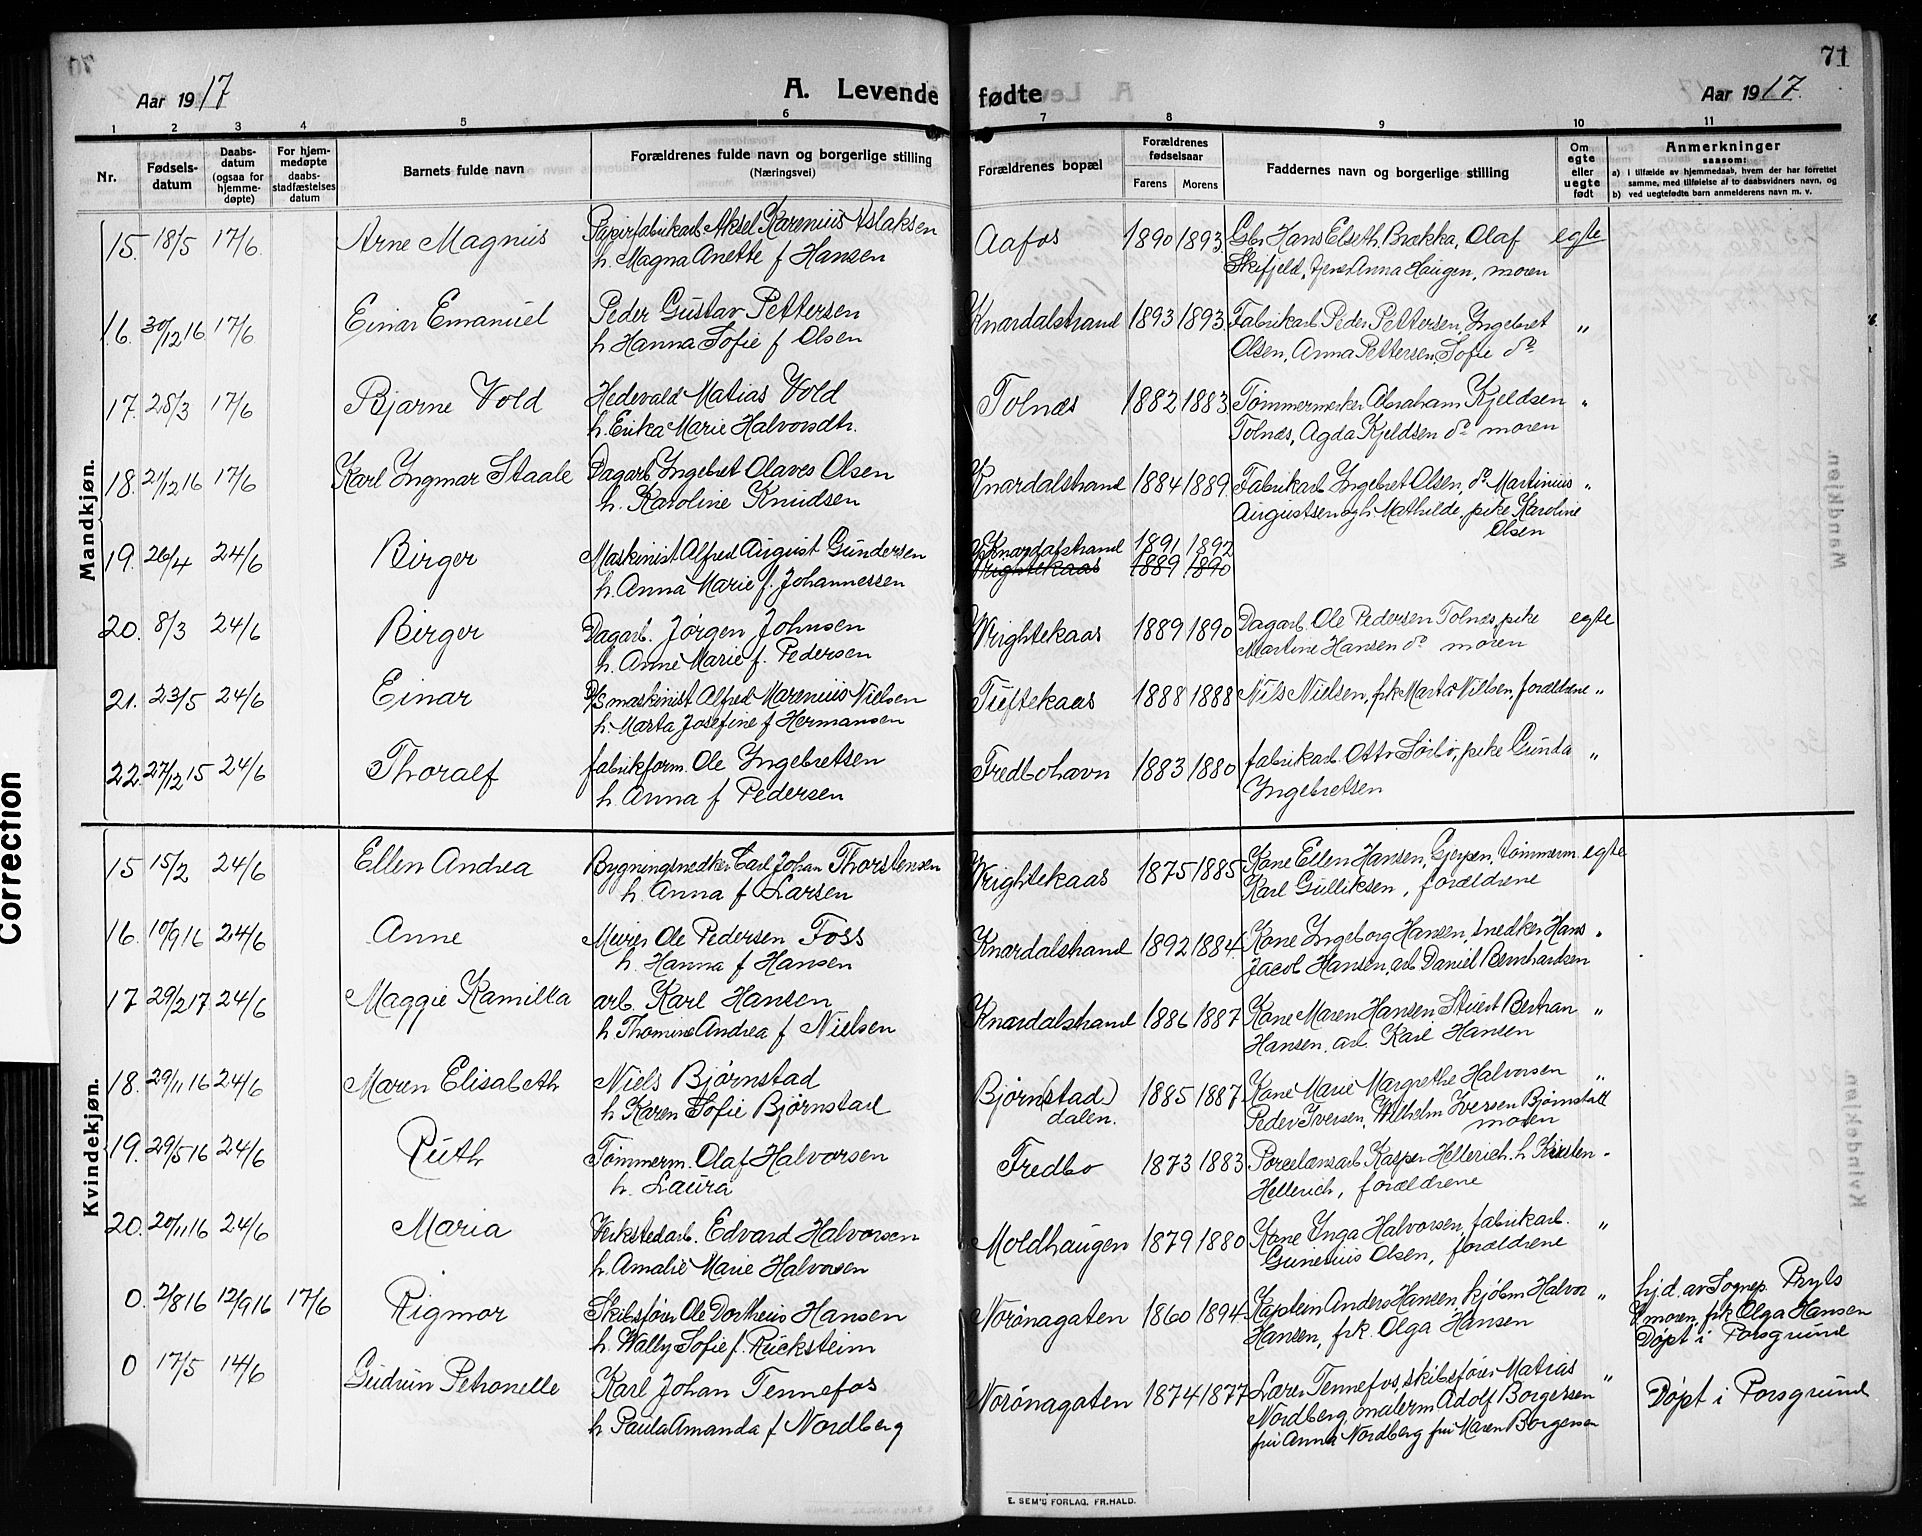 71
Aar 1917
A. Levende fødte
Aar 1917.
1 2 3 4 5 6 7 8 9 10 11
Nr.
Fødsels-
datum
Daabs-
datum
(ogsaa for
hjemme-
døpte)
For hjem-
medøpte
daabs-
stadfæstelses
datum
Barnets fulde navn
Forældrenes fulde navn og borgerlige stilling
(Næringsvei)
Forældrenes bopæl
Forældrenes
fødselsaar
Farens Morens
Faddernes navn og borgerlige stilling
Om
egte
eller
uegte
født
Anmerkninger
saasom:
a) i tilfælde av hjemmedaab, hvem der har forrettet
samme, med tilføielse af to daabsvidners navn, og
b) ved uegtefødte barn anmelderens navn m. v.
Mandkjøn.
15. 18/5 17/6 Arne Magnus Papirfabrikarb. Aksel Karenius Aslaksen Aafos 1890 1893 Gbr Hans Elseth, Brække, Olaf egte
h. Magna Anette f Hansen Skifjeld, tjener Anna Haugen, moren
16. 30/12 16 17/6 Einar Emanuel Peder Gustav Pettersen Knardalstrand 1893 1893. Fabrikarb Peder Pettersen, Ingebret "
h Hanna Sofie f Olsen Olsen, Anna Pettersen, Sofie do
17. 28/3 17/6 Bjarne Vold Hedevald Matias Vold Tolnæs 1882 1883 Tømmermerker Abraham Kjeldsen "
h. Erika Marie Halvorsdtr. Tolnæs, Agda Kjeldsen do moren
18. 21/12 16 17/6 Karl Ingmar Staale Dagarb Ingebret Olaves Olsen Knardalstrand 1884 1889. Fabrikarb Ingebret Olsen, do Martinius "
h. Karoline Knudsen Augustsen og h Mathilde, pike Karoline
Olsen
19. 26/4 24/6 Birger Maskinist Alfred August Gundersen Knardalstrand 1891 1892
h. Anna Marie f. Johannessen Wrightekaas 1889 1890
20. 8/3 24/6 Birger Dagarb. Jørgen Johnsen Wrightekaas 1889 1890 Dagarb. Ole Pedersen Tolnæs, pike egte
h. Anne Marie f. Pedersen Martine Hansen do moren
21. 23/5 24/6 Einar D/S maskinist Alfred Marenius Nielsen Tuftekaas 1888 1888 Nils Nielsen, frk Marta Nilsen, forældrene "
h. Marta Josefine f Hermansen
22. 27/12 15 24/6 Thoralf fabrikform. Ole Ingebretsen Fredbohavn 1883 1880 fabrikarb. Otto Sørli, pike Gunda "
h. Anna f Pedersen Ingebretsen
Kvindekjøn.
15 15/2 24/6 Ellen Andrea Bygningsnedker Carl Johan Thorstensen Wrightekaas 1875 1885 Kone Ellen Hansen, Gjerpen, tømmerm. egte
h. Anna f Larsen Karl Gulliksen, forældrene
16. 10/9 16 24/6 Anne Murer Ole Pedersen Foss Knardalstrand 1892 1884. Kone Ingeborg Hansen, snedker Hans "
h. Hanna f Hansen Jacob Hansen, arb Daniel Bernhardsen
17 29/2 17 24/6 Maggie Kamilla arb. Karl Hansen Knardalstrand 1886 1887 Kone Maren Hansen Stuert Bertran "
h Thomine Andrea f Nielsen Hansen. arb. Karl Hansen
18. 29/11 16 24/6 Maren Elisabeth Niels Bjørnstad Bjørn(stad) 1885 1887 Kone Marie Margrethe Halvorsen "
h Karen Sofie Bjørnstad dalen. Peder Iversen, Wilhelm Iversen Bjørnstad
moren
19. 29/5 16 24/6 Ruth Tømmerm. Olaf Halvorsen Fredbo 1873 1883 Porcelænsarb Kasper Hellerich. h Kirsten "
h. Laura Hellerich, forældrene
20. 20/11 16 24/6 Maria Verkstedarb. Edvard Halvorsen Moldhaugen 1879 1880 Kone Inga Halvorsen, fabrikarb. "
h. Amalie Marie Halvorsen Gunerius Olsen, forældrene
0. 2/8 16 12/9 16 17/6 Rigmor Skibsfører Ole Dortheus Hansen Norønagaten 1860 1894 Kaptein Anders Hansen, kjøbm Halvor " hjd. av Sognep. Pryts
h. Wally Sofie f. Rücksteim Hansen, frk. Olga Hansen V moren, frk Olga Hansen
Døpt i Porsgrund
0 17/5 14/6 Gudrun Petronelle Karl Johan Tennefos Norønagaten 1874 1877 Laren Tennefos, skibsfører Matias " Døpt i Porsgrund
h Paula Amanda f Nordberg Nordberg, malerm Adolf Borgersen
fru Anna Nordberg fru Maren Borgersen
E. SEM'S FORLAG, FR.HALD.
Correction